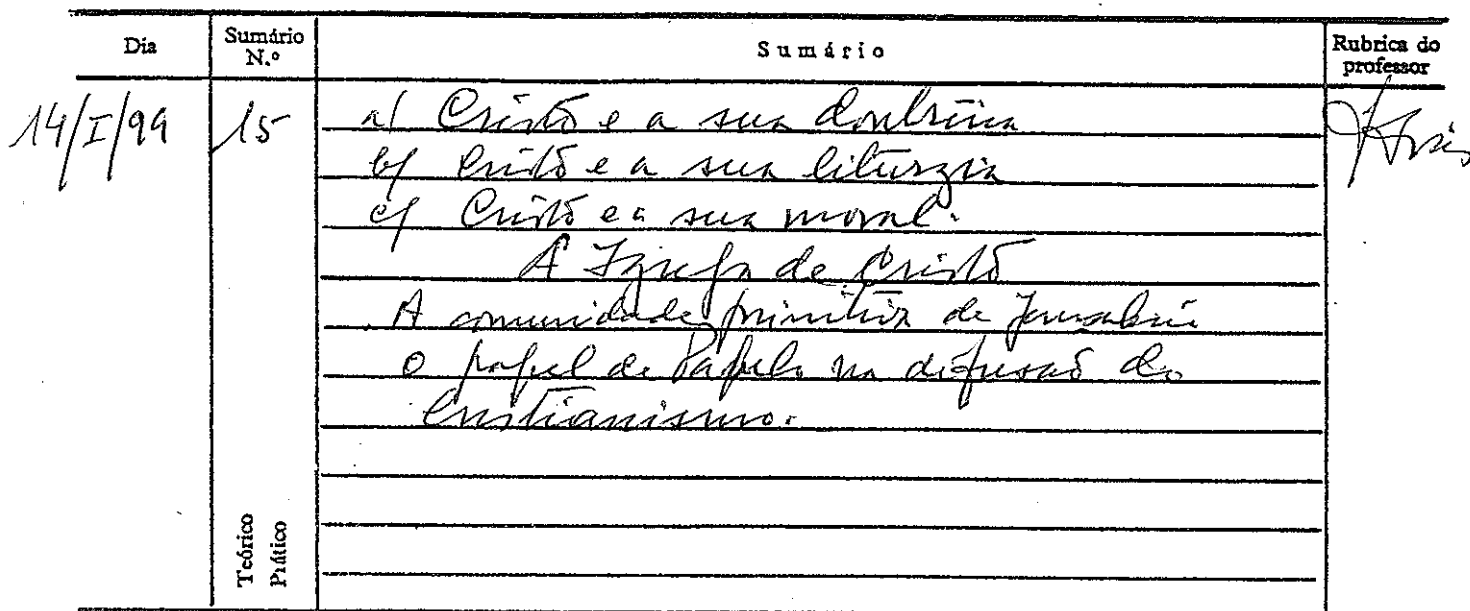 Dia
Sumário N.º
Sumário
Rubrica do professor
14/I/99
15
a) Cristo e a sua doutrina
b) Cristo e a sua liturgia
c) Cristo e a sua moral.
A Igreja de Cristo
A comunidade primitiva de Jerusalém
o papel de na difusão do
Cristianismo.
Teórico
Prático